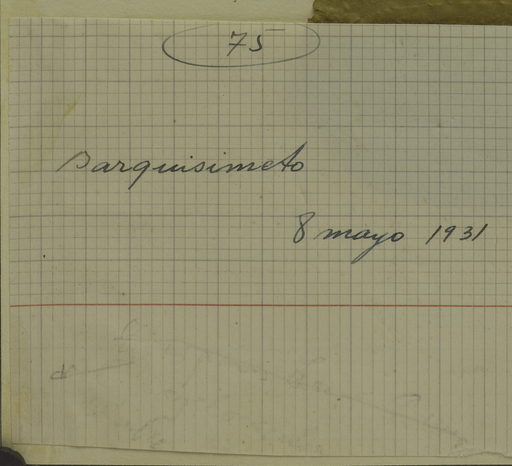 75
Barquisimeto
8 mayo 1931